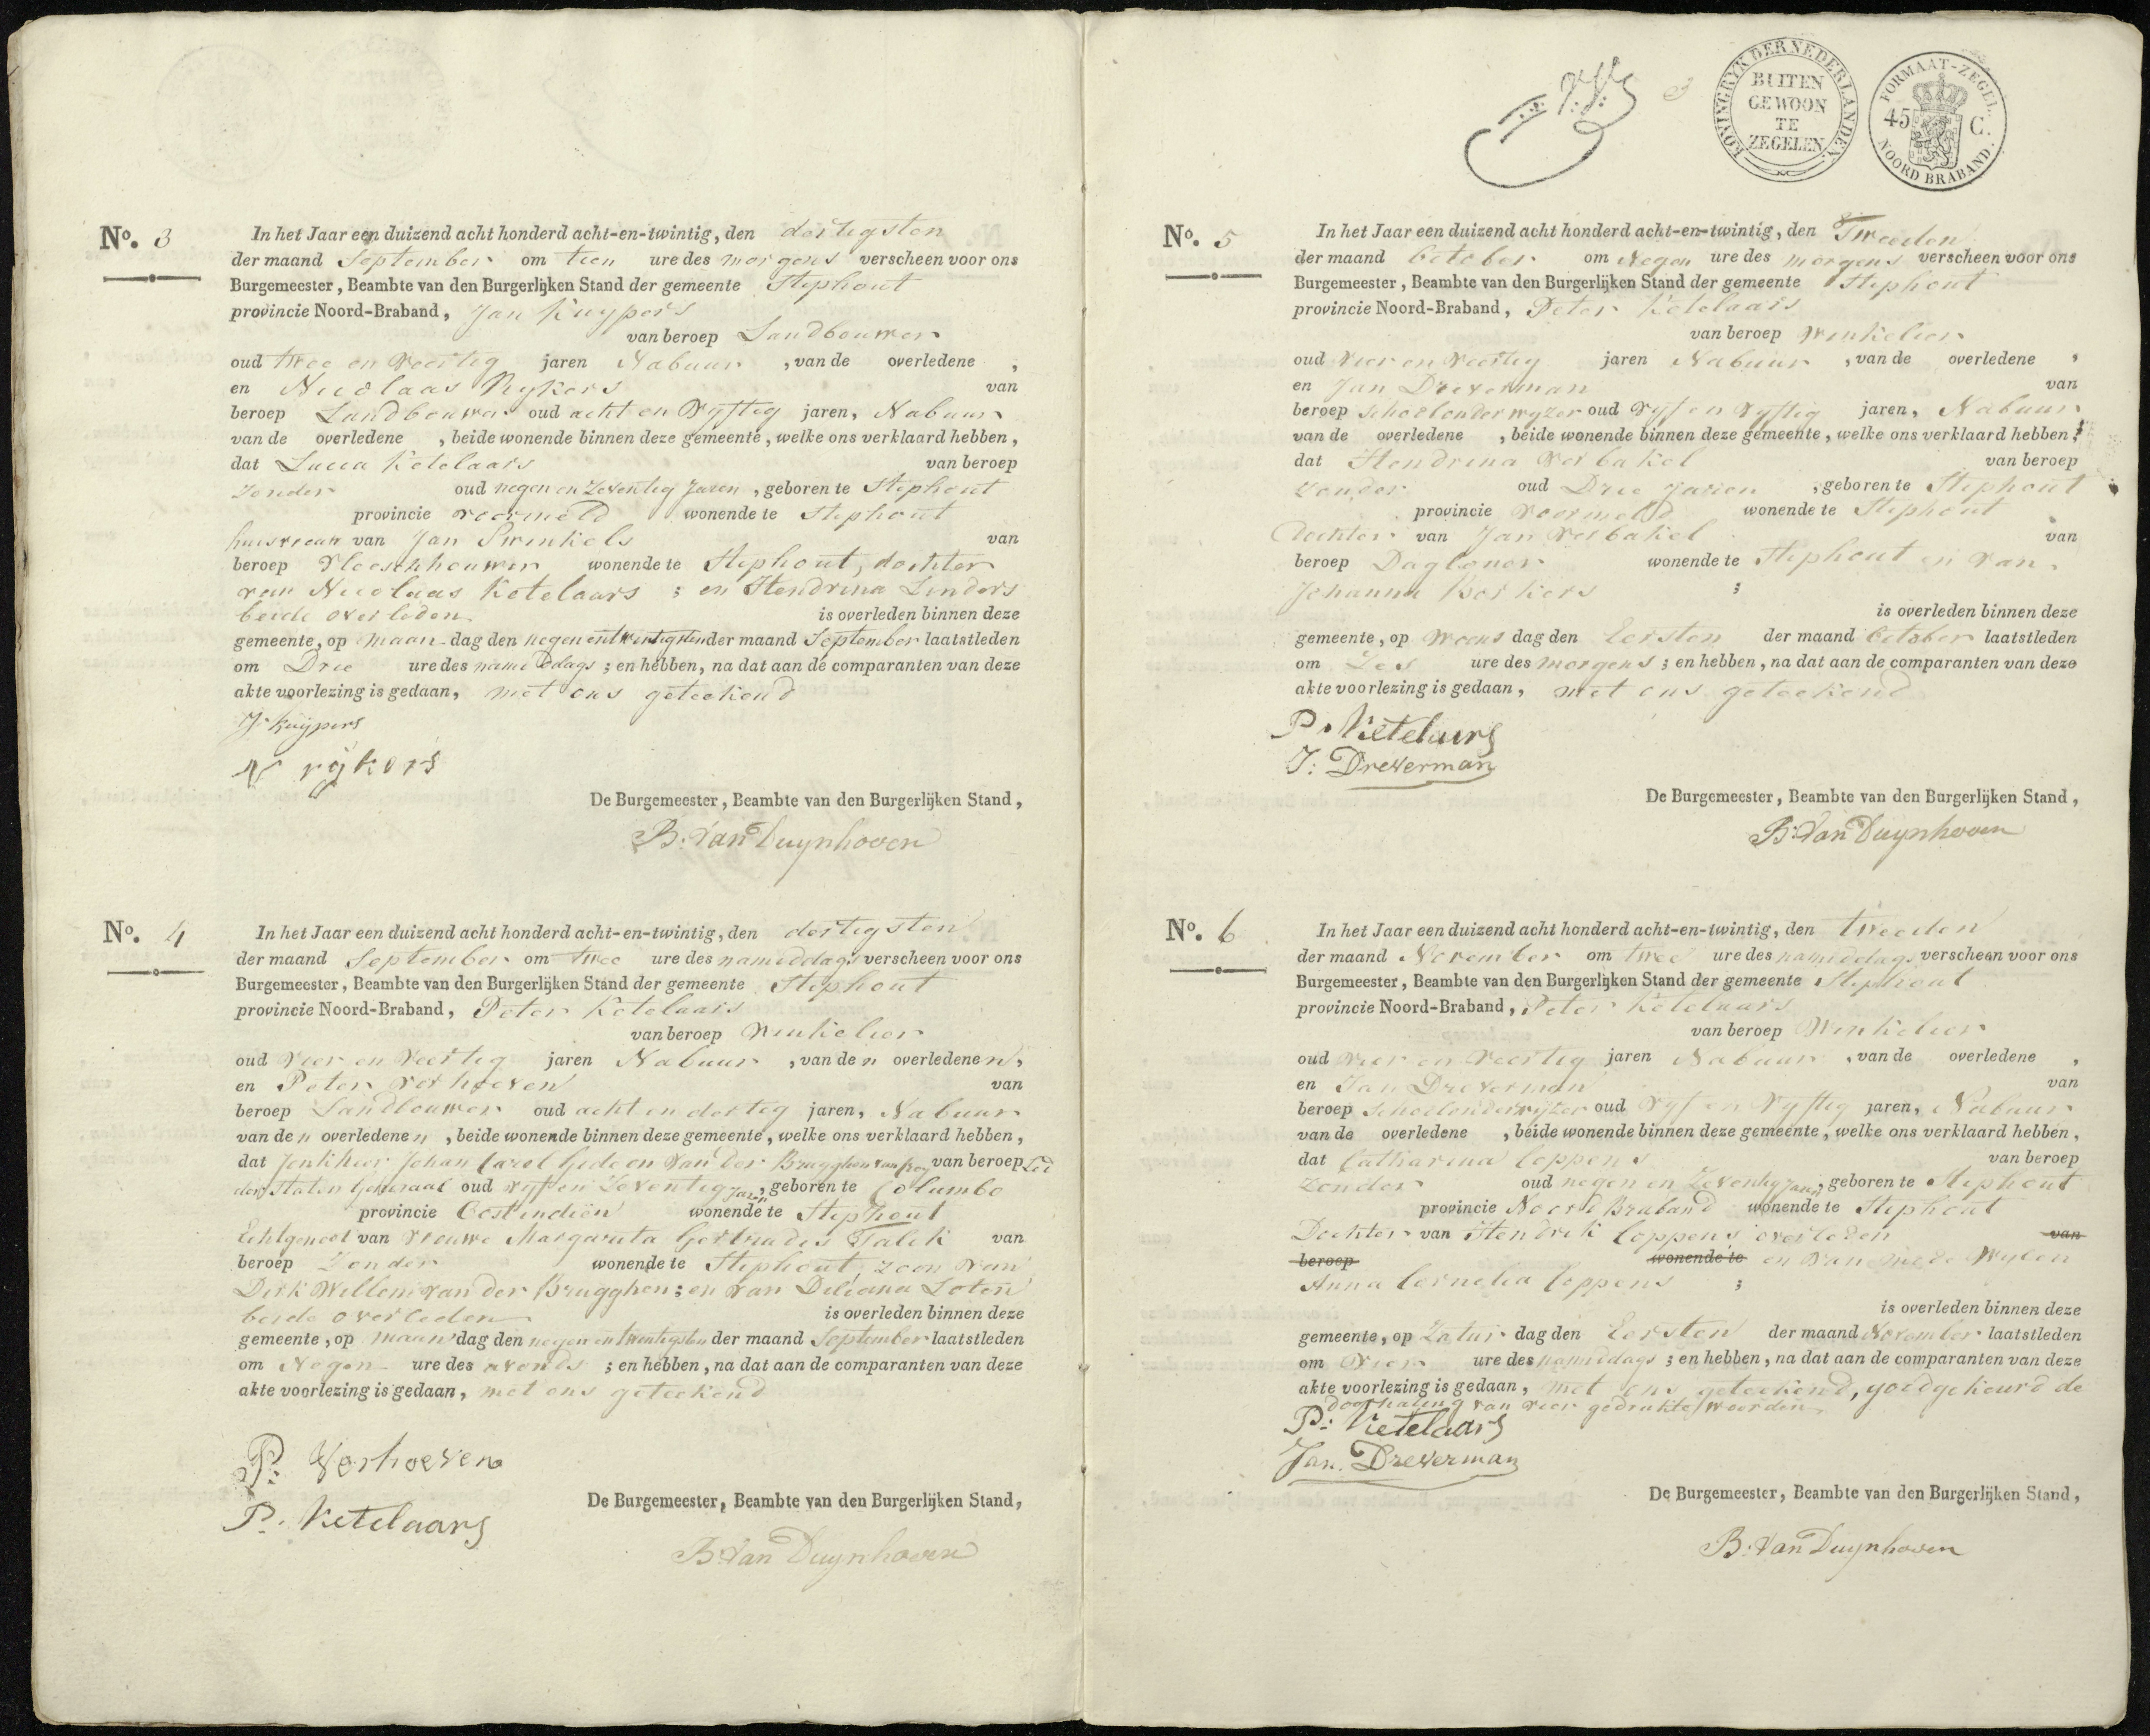 No. 3
In het Jaar een duizend acht honderd acht-en-twintig, den dertigsten
der maand September om tien ure des morgens verscheen voor ons
Burgemeester, Beambte van den Burgerlijken Stand der gemeente Stiphout
provincie Noord-Braband, Jan Kuypers
van beroep Landbouwer
oud twee en veertig jaren Nabuur, van de overledene,
en Nicolaas Rykers van
beroep Landbouwer oud acht en vyftig jaren, Nabuur
van de overledene, beide wonende binnen deze gemeente, welke ons verklaard hebben,
dat Lucia Ketelaars van beroep
zonder oud negen en zeventig Jaren, geboren te Stiphout
provincie voormeld wonende te Stiphout
huisvrouw van Jan Swinkels van
beroep Vleeschhouwer wonende te Stiphout, dochter
van Nicolaas Ketelaars; en Hendrina Linders
beide overleden is overleden binnen deze
gemeente, op maandag den negenentwintigsten der maand September laatstleden
om Drie ure des namiddags; en hebben, na dat aan de comparanten van deze
akte voorlezing is gedaan, met ons geteekend
J. Kuijpers
N rijkers
De Burgemeester, Beambte van den Burgerlijken Stand,
B. Van Duynhoven
No. 4
In het Jaar een duizend acht honderd acht-en-twintig, den dertigsten
der maand September om twee ure des namiddags verscheen voor ons
Burgemeester, Beambte van den Burgerlijken Stand der gemeente Stiphout
provincie Noord-Braband, Peter Ketelaars
van beroep Winkelier
oud vier en veertig jaren Nabuur, van den overledenen,
en Peter Verhoeven van
beroep Landbouwer oud acht en dertig jaren, Nabuur
van den overledenen, beide wonende binnen deze gemeente, welke ons verklaard hebben,
dat Jonkheer Johan Carel Gideon Van Der Brugghen van beroep Lid
der Staten Generaal oud vyf en Zeventig Jaren, geboren te Columbo
provincie Oostindiën wonende te Stiphout
Echtgenoot van Vrouwe Margareta Gertrudes Falck van
beroep Zonder wonende te Stiphout, zoon van
Dirk Willem van der Brugghen; en van Deliana Loten
beide overleden is overleden binnen deze
gemeente, op maandag den negen en twentigsten der maand September laatstleden
om Negen ure des avonds; en hebben, na dat aan de comparanten van deze
akte voorlezing is gedaan, met ons geteekend
P: Verhoeven
P. Ketelaars
De Burgemeester, Beambte van den Burgerlijken Stand,
B: Van Duynhoven
KONINGRYK DER NEDERLANDEN.
BUITEN
GEWOON
TE
ZEGELEN
FORMAAT-ZEGEL.
45 C.
NOORD BRABAND.
No. 5
In het Jaar een duizend acht honderd acht-en-twintig, den Tweeden
der maand October om Negen ure des morgens verscheen voor ons
Burgemeester, Beambte van den Burgerlijken Stand der gemeente Stiphout
provincie Noord-Braband, Peter Ketelaars
van beroep Winkelier
oud vier en veertig jaren Nabuur, van de overledene,
en Jan Dreverman van
beroep Schoolonderwyzer oud vyf en vyftig jaren, Nabuur
van de overledene, beide wonende binnen deze gemeente, welke ons verklaard hebben,
dat Hendrina Verbakel van beroep
zonder oud Drie Jaren, geboren te Stiphout
provincie voormeld wonende te Stiphout
Dochter van Jan Verbakel van
beroep Dagloner wonende te Stiphout en van
Johanna Berkers;
is overleden binnen deze
gemeente, op woensdag den Eersten der maand October laatstleden
om Zes ure des morgens; en hebben, na dat aan de comparanten van deze
akte voorlezing is gedaan, met ons geteekend
P. Ketelaars
J: Dreverman
De Burgemeester, Beambte van den Burgerlijken Stand,
B: Van Duynhoven
No. 6
In het Jaar een duizend acht honderd acht-en-twintig, den tweeden
der maand November om twee ure des namiddags verscheen voor ons
Burgemeester, Beambte van den Burgerlijken Stand der gemeente Stiphout
provincie Noord-Braband, Peter Ketelaars
van beroep Winkelier
oud vier en veertig jaren Nabuur, van de overledene,
en Jan Dreverman van
beroep Schoolonderwijzer oud vyf en vyftig jaren, Nabuur
van de overledene, beide wonende binnen deze gemeente, welke ons verklaard hebben,
dat Catharina Coppens van beroep
Zonder oud negen en Zeventig Jaren, geboren te Stiphout
provincie Noord Braband wonende te Stiphout
Dochter van Hendrik Coppens overleden van
beroep wonende te en van mede wylen
Anna Cornelia Coppens;
is overleden binnen deze
gemeente, op Zaturdag den Eersten der maand November laatstleden
om vier ure des namiddags; en hebben, na dat aan de comparanten van deze
akte voorlezing is gedaan, met ons geteekend, goedgekeurd de
doorhaling van vier gedrukte woorden
P: Ketelaars
Jan. Dreverman
De Burgemeester, Beambte van den Burgerlijken Stand,
B: Van Duynhoven